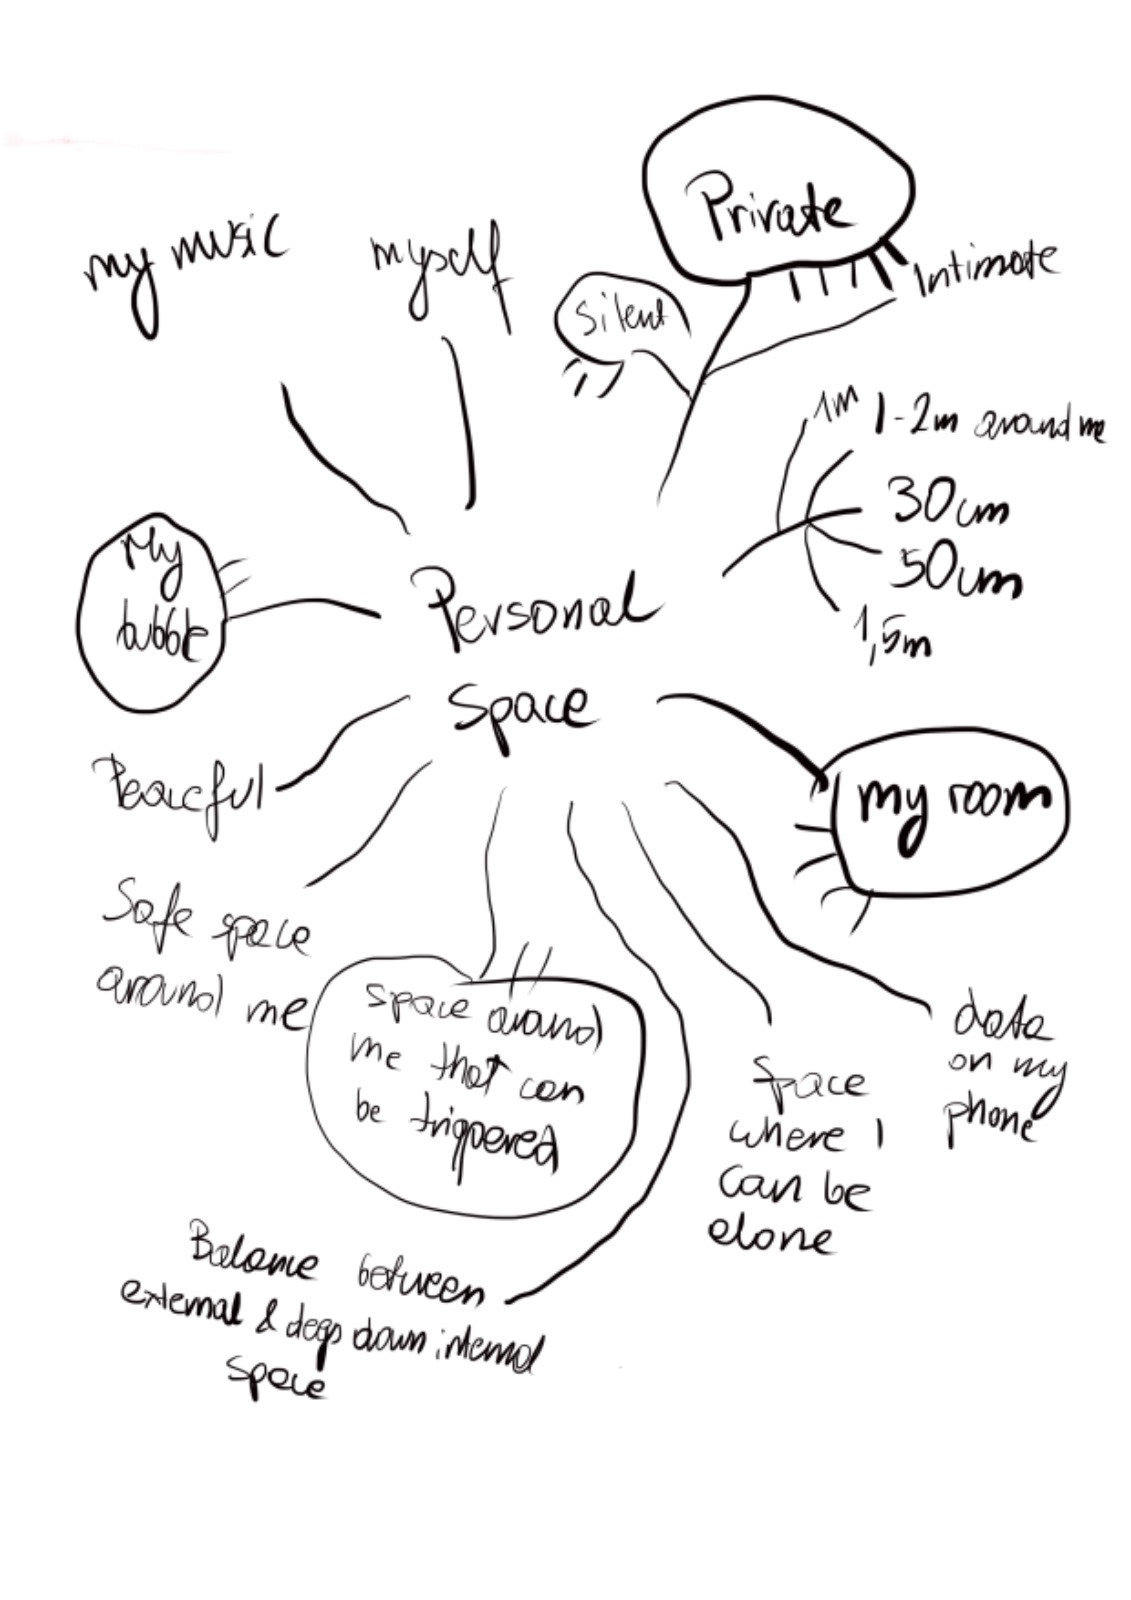 Private
my music
myself
Silent
Intimate
1m
1-2m around me
30cm
50cm
1,5m
My
bubble
Personal
Space
Peaceful
my room
Safe space
around me
space around
me that can
be triggered
data
on my
phone
Space
where I
can be
alone
Balance between
external & deep down internal
space